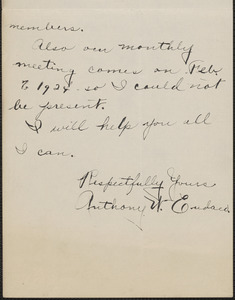 members.
Also our monthly
meeting comes on Feb.
1927 so I could not
be present.
I will help you all
I can.
Respectfully Yours
Anthony